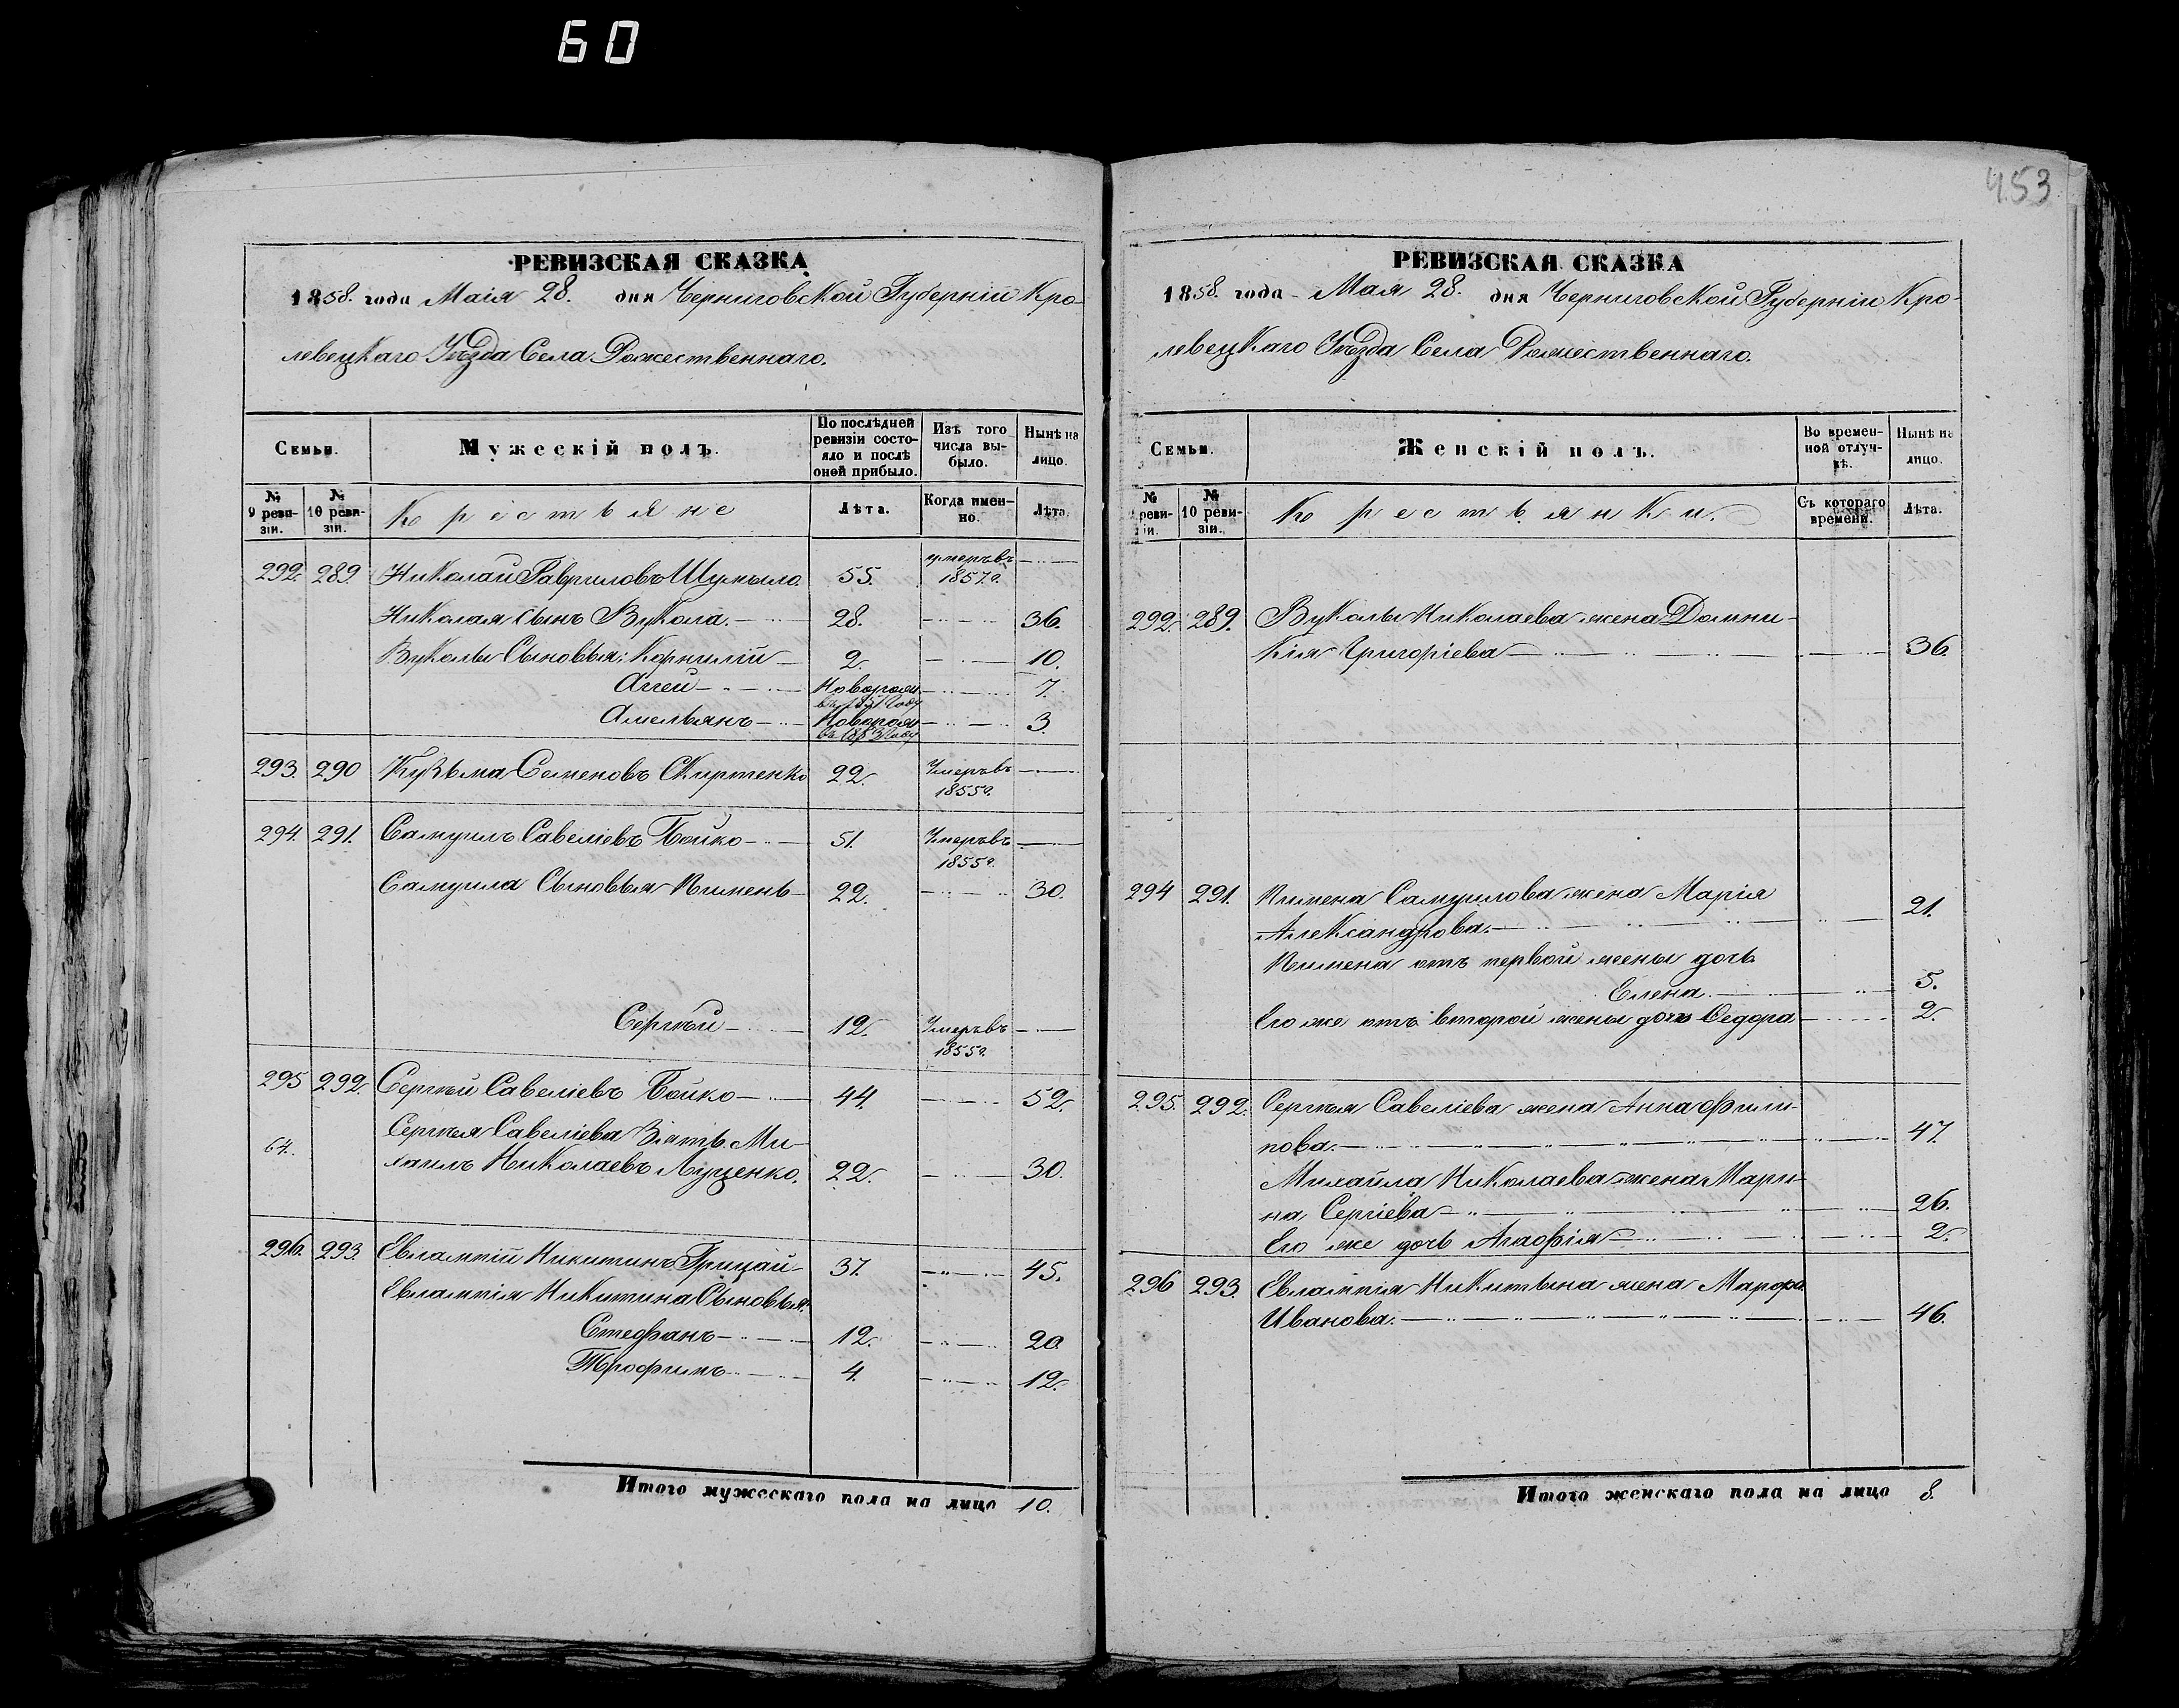 60
453
РЕВИЗСКАЯ СКАЗКА
1858. года Маія 28. дня Черниговской Губерніи Кро-
левецкаго Уѣзда Села Рожественнаго.
Семьи. Мужескій полъ. По послѣдней ревизіи состояло и послѣ оней прибыло. Изъ того числа выбыло. Нынѣ на лицо.
№ 9 ревизіи. № 10 ревизіи. Крестьяне Лѣта. Когда именно. Лѣта.
292. 289 Николай Гавриловъ Шумыло 55. умеръ въ 1857 г.
Николая Сынъ Вукола 28. 36.
Вуколы Сыновья: Корнилій 2. 10.
Аггей Иоворож въ 1851 Году 7.
Амельянъ Новорож 3.
293. 290 Кузьма Семеновъ Скиртенко 22. Умеръ въ 1855 г.
294. 291. Самуилъ Савеліевъ Бойко 51. Умеръ въ 1855 г.
Самуила Сыновья Пименъ 22. 30.
Сергѣй 12. Умеръ въ 1855 г.
295 292. Сергѣй Савеліевъ Бойко 44. 52.
64. Сергѣя Савеліева Зять Ми-
хаилъ Николаевъ Луценко. 22. 30.
296. 293. Евлампій Никитинъ Грицай 37. 45.
Евлампія Никитина Сыновья:
Стефанъ 12. 20
Трофимъ 4. 12.
Итого мужескаго пола на лицо 10.
РЕВИЗСКАЯ СКАЗКА
1858. года Мая 28. дня Черниговской Губерніи Кро-
левецкаго Уѣзда Села Рожественнаго.
Семьи. Женскій полъ. Во временной отлучкѣ. Нынѣ на лицо.
№ 9 ревизіи. № 10 ревизіи. Крестьянки. Съ котораго времени. Лѣта.
292. 289. Вуколы Николаева жена Домни-
кія Григоріева 36.
294 291. Пимена Самуилова жена Марія
Александрова. 21.
Пимена отъ первой жены дочь
Елена. 5.
Его же отъ второй жены дочь Федора 2.
295. 292. Сергѣя Савеліева жена Анна Фили-
пова. 47.
Михайла Николаева жена Мари-
на Сергіева 26.
Его же дочь Агафія 2.
296 293. Евлампія Никитина жена Марфа
Иванова. 46.
Итого женскаго пола на лицо 8.